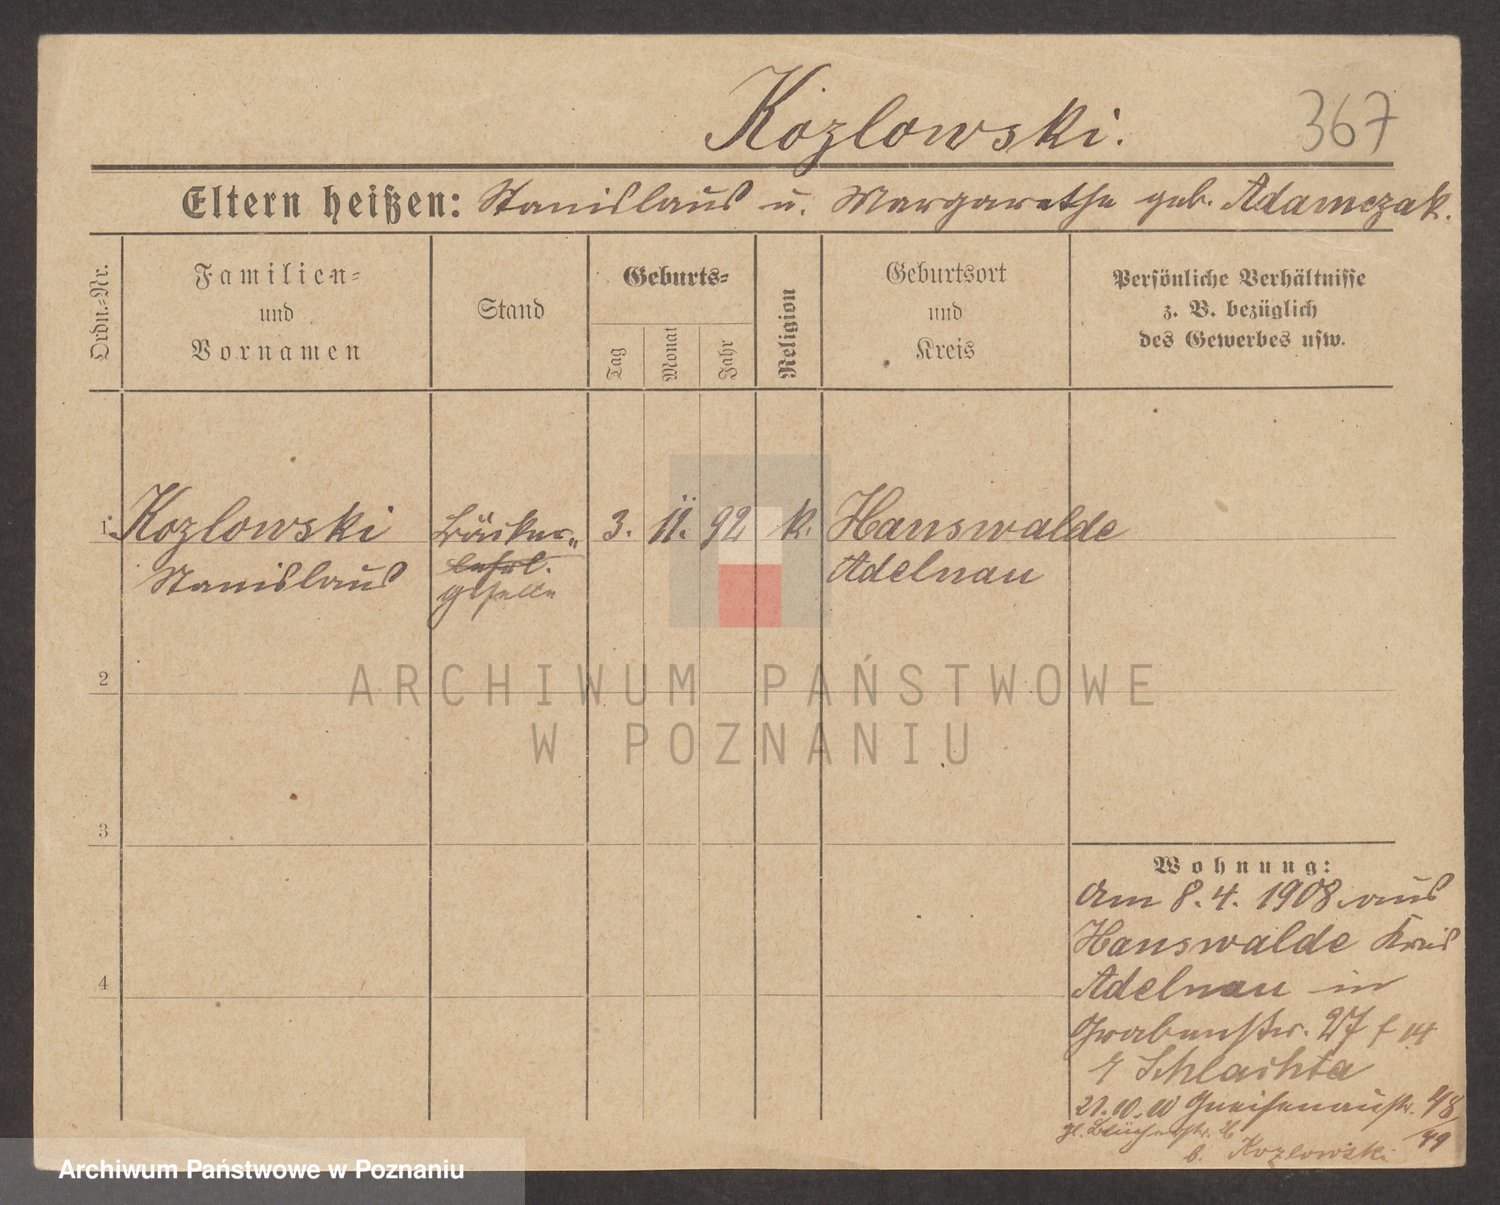 Kozlowski.
367
Eltern heißen: Stanislaus u. Margarethe geb. Adamczak.
Ordn.-Nr.
Familien-
und
Vornamen
Stand
Geburts-
Tag
Monat
Jahr
Religion
Geburtsort
und
Kreis
Persönliche Verhältnisse
z. B. bezüglich
des Gewerbes usw.
1. Kozlowski Bäcker- 3. 11. 92 k. Hanswalde
Stanislaus lehrl. Adelnau
geselle
2
3
4
Wohnung:
Am 8.4.1908 aus
Hanswalde Kreis
Adelnau in
Grabenstr. 27
Schlachta
Gneisenaustr.
b. Kozlowski
ARCHIWUM PAŃSTWOWE
W POZNANIU
Archiwum Państwowe w Poznaniu